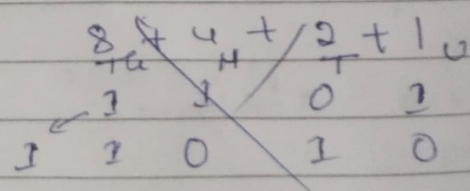 8 + 4 + 2 + 1
TH H T U
1 1 0 1
1 1 0 1 0